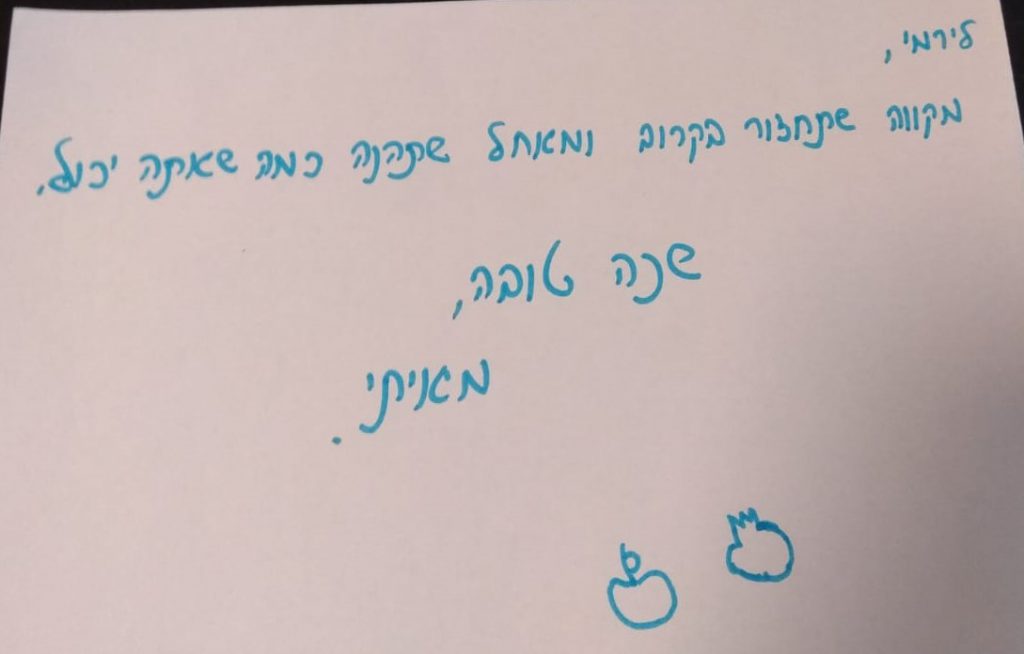 לירמי,
מקווה שתחזור בקרוב ומאחל שתהנה כמה שאתה יכול.
שנה טובה,
מאיתי.